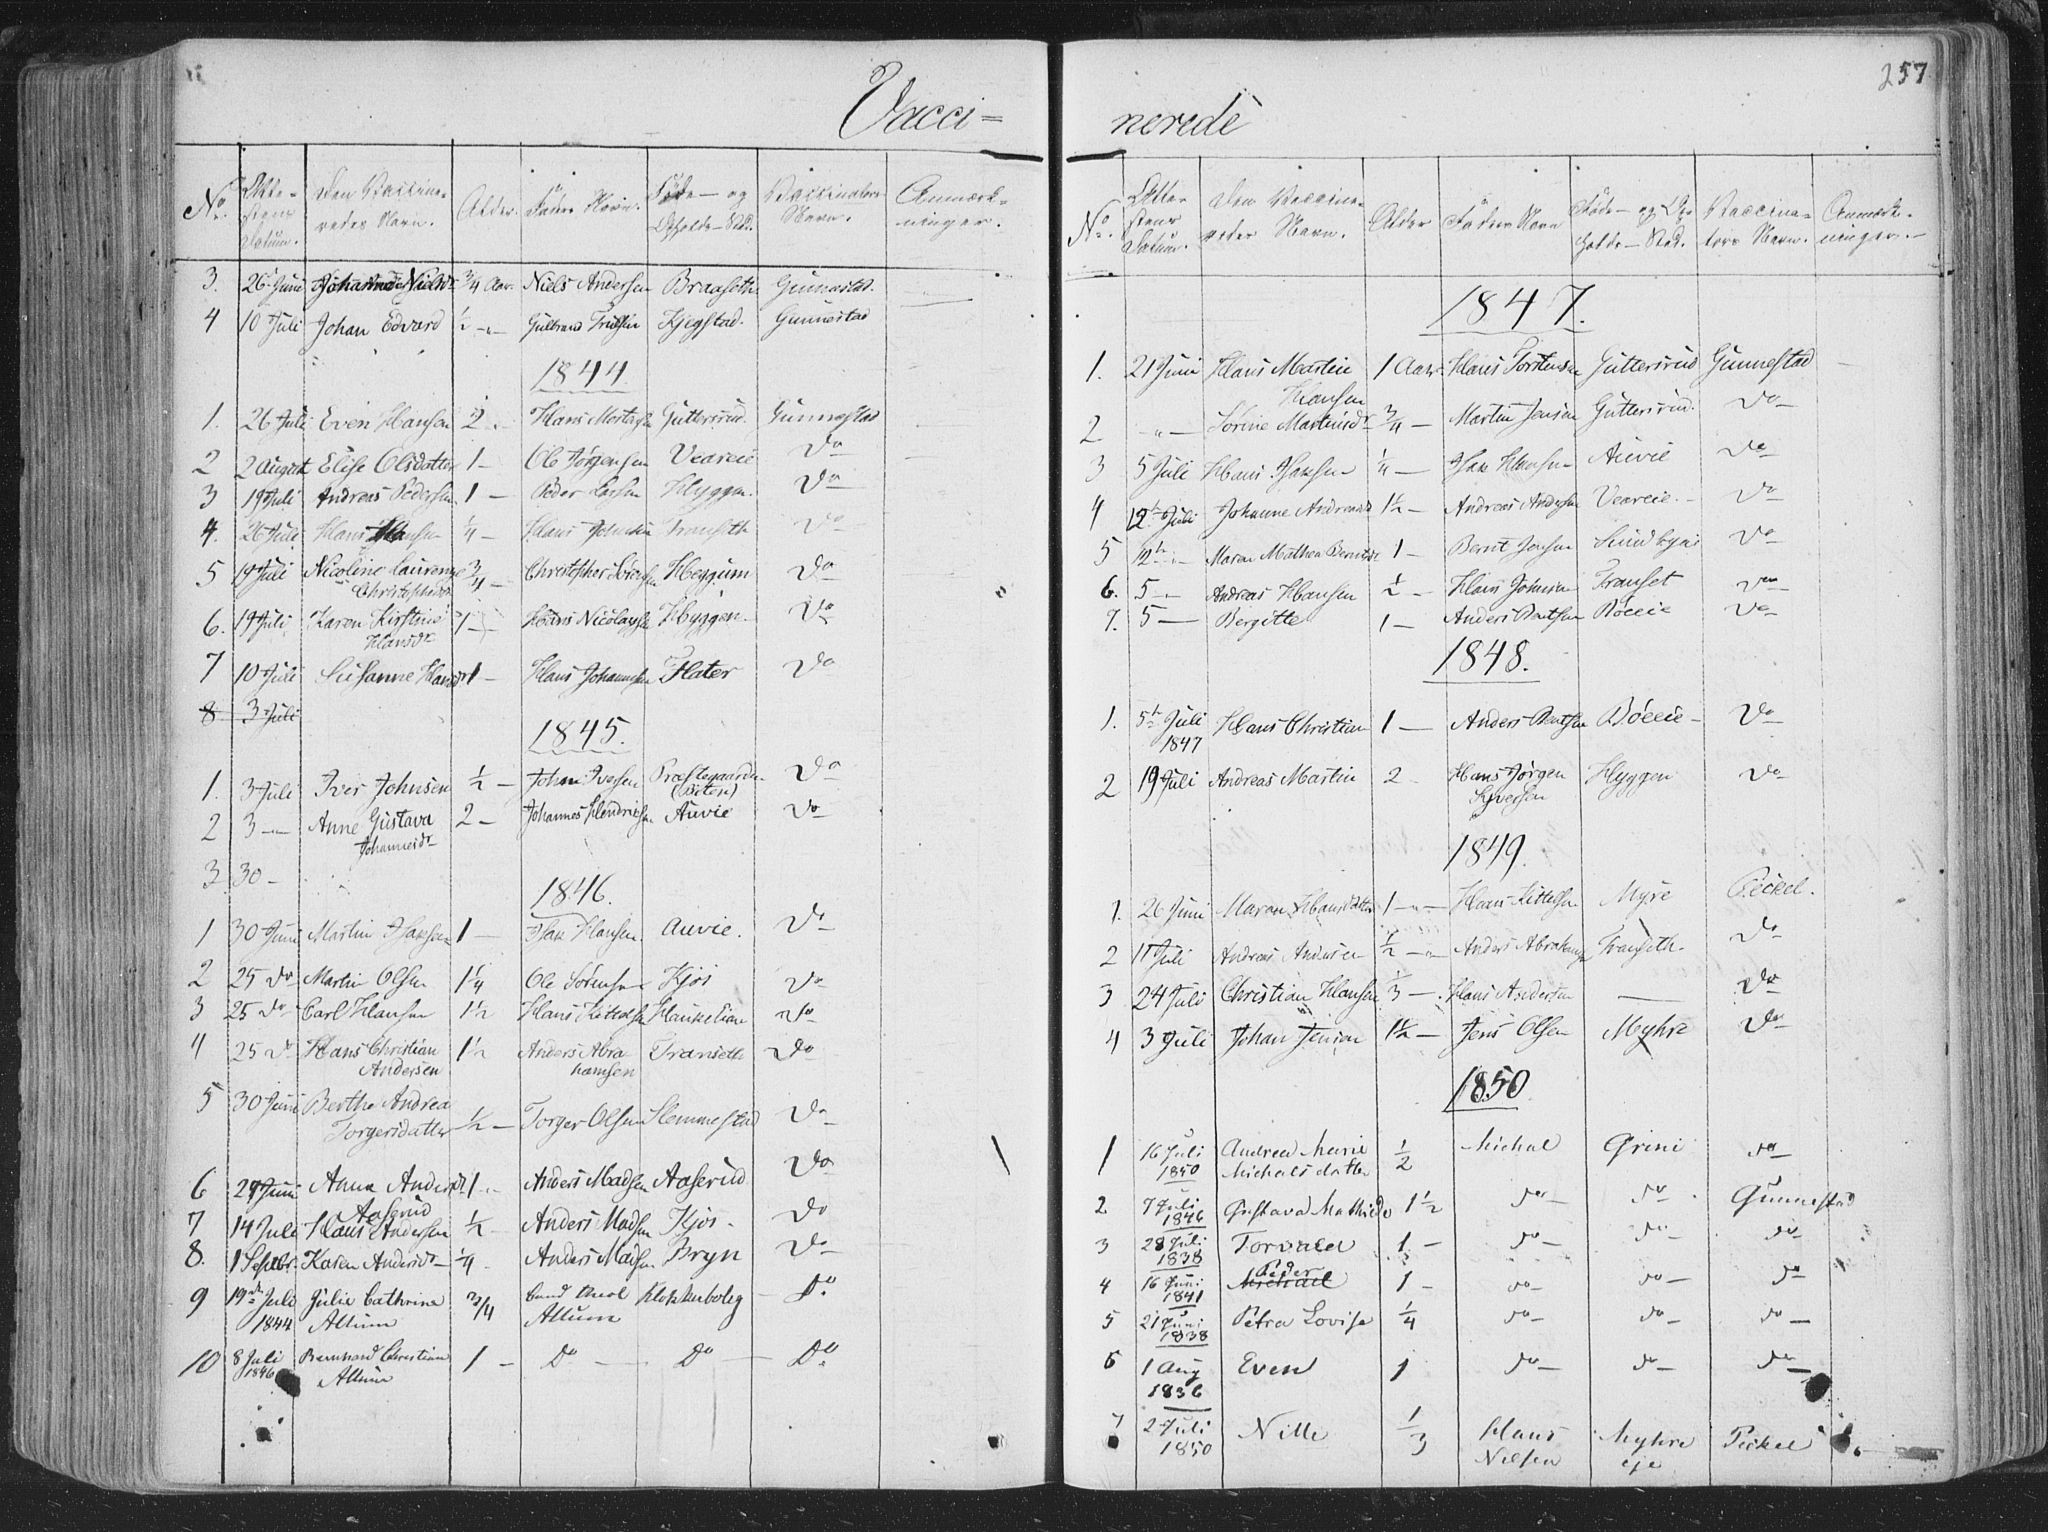 Vacci=
No.
Alder.
3. 26 Juni Johanne Nielsdr 3/4 Aar. Niels Andersen Braaseth Gunnestad.
4 10 Juli Johan Edvard 1/2 -"- Gulbrand Truelsen Kjegstad. Gunnestad
1844.
1. 26 Juli Even Hansen 2 - Hans Mortensen Guttersrud. Gunnestad
2 2 August Elise Olsdatter 1 - Ole Jørgensen Veareie Do
3 19 Juli Andreas Pedersen 1 - Peder Larsen Hyggen. Do
4. 26 Juli Hans Hansen 1/4 - Hans Johnsen Franseth Do
5 19 Juli Nicoline Laurenze 3/4 - Christopher Heggum Do
Christophersdr
6. 19 Juli Karen Kirstine 1 - Hans Nicolaysen Hyggen. Do
Hansdr
7 10 Juli Susanne Hansdr 1 - Hans Johannesen Flater Do
8 3 Juli
1845.
1. 3 Juli Iver Johnsen 1/2 - Johan Iversen Præstegaarden Do
2 3 -"- Anne Gustava 2 - Johannes Hendriksen Auvie Do
Johannesdr
3 30 -
1846.
1 30 Juni Martin Isaksen 1 - Isak Hansen. Auvie. Do
2 25 Do Martin Olsen 1 1/4 Ole Sørensen Kjos Do
3 25 Do Carl Hansen 1 1/2 Hans Kittelsen Haukelien Do
4 25 Do Hans Christian 1 1/2 Anders Abra Franseth Do
Andersen hamsen
5 30 Juni Berthe Andrea
Torgersdatter 1/2 - Torger Olsen Slemmestad Do
6 29 Juni Anna Andersdr 1 - Anders Madsen Aaserud Do
Aaserud
7 14 Juli Hans Andersen 1/2 - Anders Madsen Kjos - Do
8. 1 Septbr. Karen Andersdr 1/4 - Anders Madsen Bryn Do
9 19de Juli Julie Cathrine 3/4 Klokkerbolig - Do
1844 Allum Allum
10 8 Juli Bernhard Christian 1 - Do - Do - Do
1846 Allum
257
nerede
No.
Alder
1847.
1. 21 Juni Hans Martin 1 Aar Hans Torstensen Guttersrud Gunnestad
Hansen
2 -"- Sørine Martinsdr 3/4 - Martin Jensen Guttersrud. Do
3 5 Juli Hans Isaksen 1/4 - Isak Hansen Auvie Do
4 12te Juli Johanne Andreasdr 1 1/2 - Andreas Andersen Veareie. Do
5 12te -"- Maren Mathea Berntsdr 1 - Bernt Jensen Sundbyeie Do
6. 5 -"- Andreas Hansen 1/2 - Hans Johnsen Franset Do
7. 5 - Bergitte 1 - Anders Berntsen Bøeeie Do
1848.
1. 5te Juli Hans Christian 1 - Anders Berntsen Bøeeie - Do
1847
2 19 Juli Andreas Martin 2 - Hans Jørgen Hyggen Do
Syversen
1849.
1. 26 Juni Maren Hansdatter 1 -"- Hans Kittelsen Myre Peckel.
2 11 Juli Andreas Andersen 1/2 -"- Anders Abrahamsen Franseth. Do
3 24 Juli Christian Hansen 1/3 - Hans Andersen - Do
4 3 Juli Johan Jensen 1 1/2 - Jens Olsen Myhre Do
1850
1 16 Juli Andrea Marie 1/2 Michal Grini do
1850 Michalsdatter
2 7 Juli Gustava Mathilde 1 1/2 do do Gunnestad
1846
3 28 Juli Torvald 1 - do do do
1838
4 16 Juni Peder Michael 1 - do do do
1841
5 21 Juni Petra Lovise 1/4 do do do
1838
6 1 Aug Even 1 do do do
1836
7 2 Juli Nille 1/3 Hans Myhre Peckel
1850 Nilsen eje